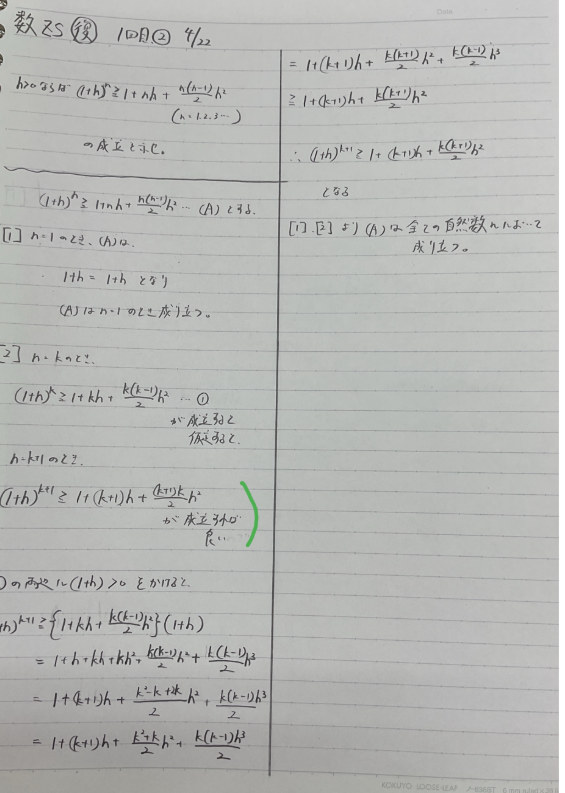 数ZS 復 1回目② 4/22
h>0ならば (1+h)^n ≧ 1+nh+ n(n-1)/2 h²
(n=1.2.3…)
の成立を示せ。
(1+h)^n ≧ 1+nh+ n(n-1)/2 h² … (A) とする.
[1] n=1のとき、(A)は.
1+h = 1+h となり
(A)はn=1のとき成り立つ。
[2] n=kのとき.
(1+h)^k ≧ 1+kh+ k(k-1)/2 h² … ①
が成立すると
仮定すると.
n=k+1のとき.
(1+h)^{k+1} ≧ 1+(k+1)h+ (k+1)k/2 h²
が成立すれば
良い
の両辺に(1+h)>0 をかけると
h)^{k+1} ≧ {1+kh+ k(k-1)/2 h²}(1+h)
= 1+h+kh+kh²+ k(k-1)/2 h² + k(k-1)/2 h³
= 1+(k+1)h+ k²-k+2k/2 h² + k(k-1)h³/2
= 1+(k+1)h+ k²+k/2 h² + k(k-1)h³/2
= 1+(k+1)h+ k(k+1)/2 h² + k(k-1)/2 h³
≧ 1+(k+1)h+ k(k+1)/2 h²
∴ (1+h)^{k+1} ≧ 1+(k+1)h+ k(k+1)/2 h²
となる
[1].[2]より(A)は全ての自然数nにおいて
成り立つ。
Date
KOKUYO LOOSE-LEAF